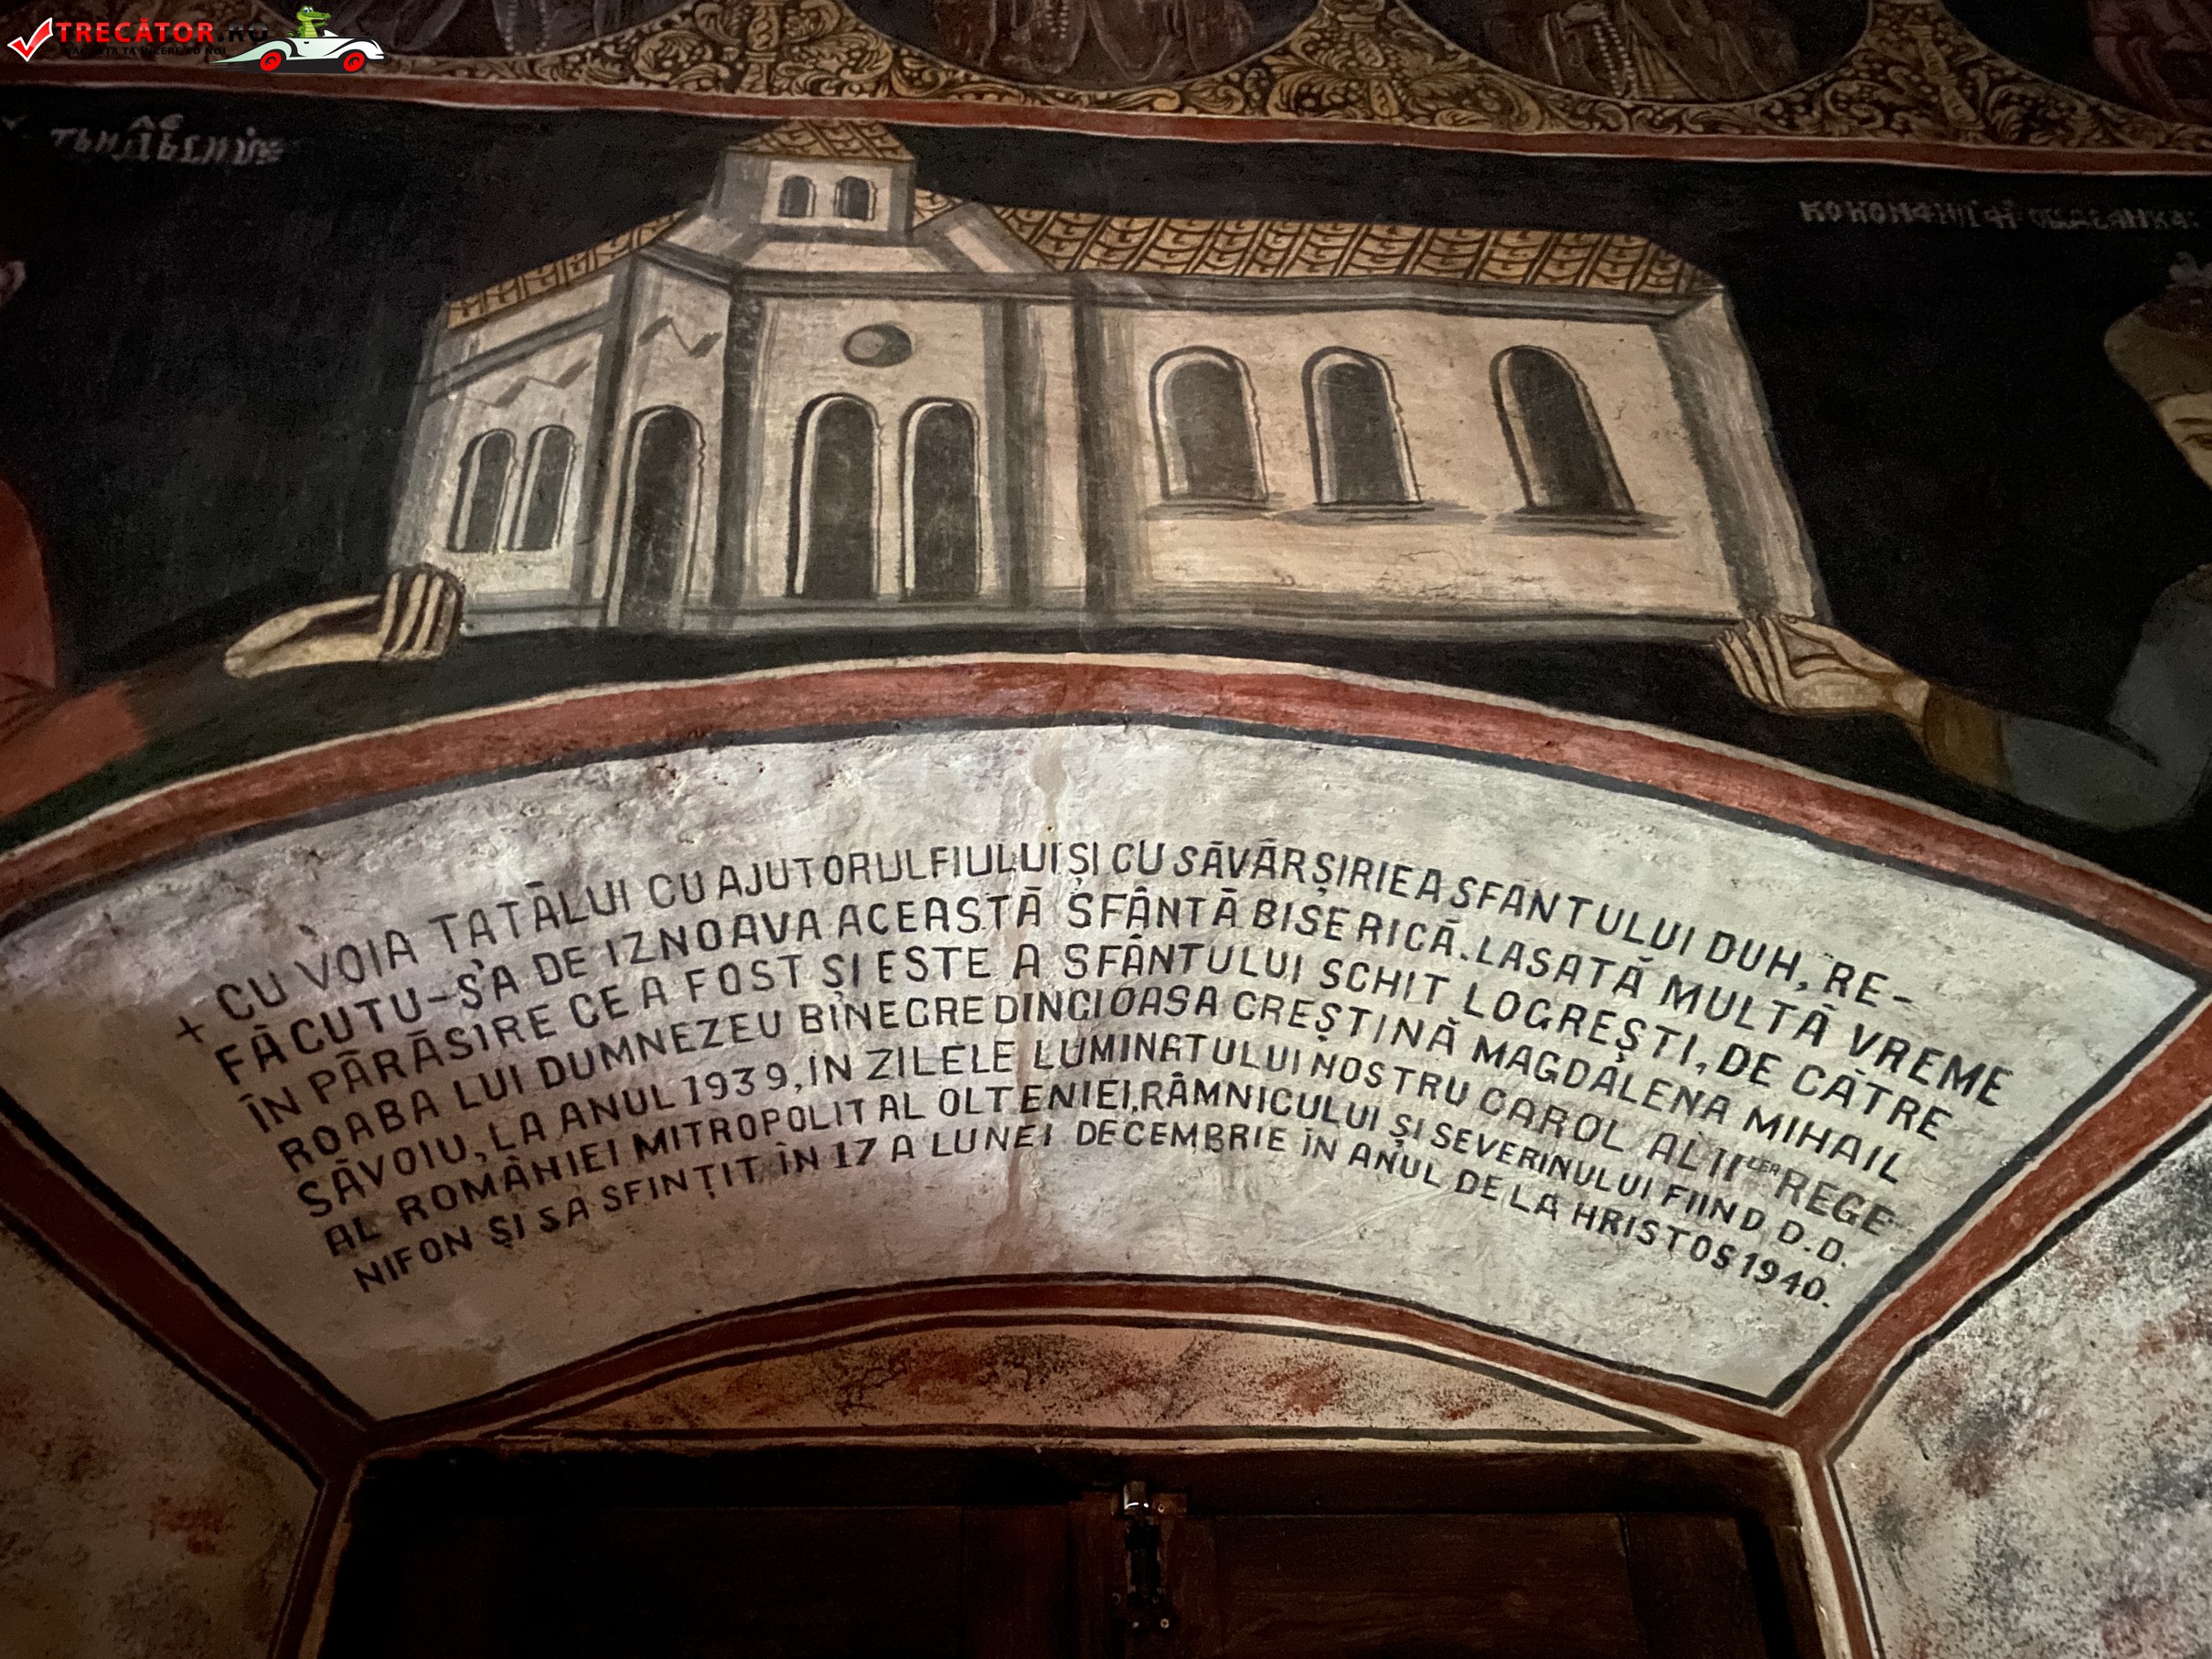 TRECĂTOR.RO
VACANȚA TA ÎNCEPE CU NOI
+ CU VOIA TATĂLUI CU AJUTORUL FIULUI ȘI CU SĂVÂRȘIRIEA SFANTULUI DUH, RE-
FĂCUTU-S'A DE IZNOAVA ACEASTĂ SFÂNTĂ BISERICĂ. LASATĂ MULTĂ VREME
ÎN PĂRĂSIRE CE A FOST ȘI ESTE A SFÂNTULUI SCHIT LOGREȘTI, DE CĂTRE
ROABA LUI DUMNEZEU BINECREDINCIOASA CREȘTINĂ MAGDALENA MIHAIL
SĂVOIU, LA ANUL 1939, IN ZILELE LUMINATULUI NOSTRU CAROL AL II LEA REGE
AL ROMÂNIEI MITROPOLIT AL OLTENIEI, RÂMNICULUI ȘI SEVERINULUI FIIND D.D.
NIFON ȘI SA SFINȚIT ÎN 17 A LUNEI DECEMBRIE ÎN ANUL DE LA HRISTOS 1940.